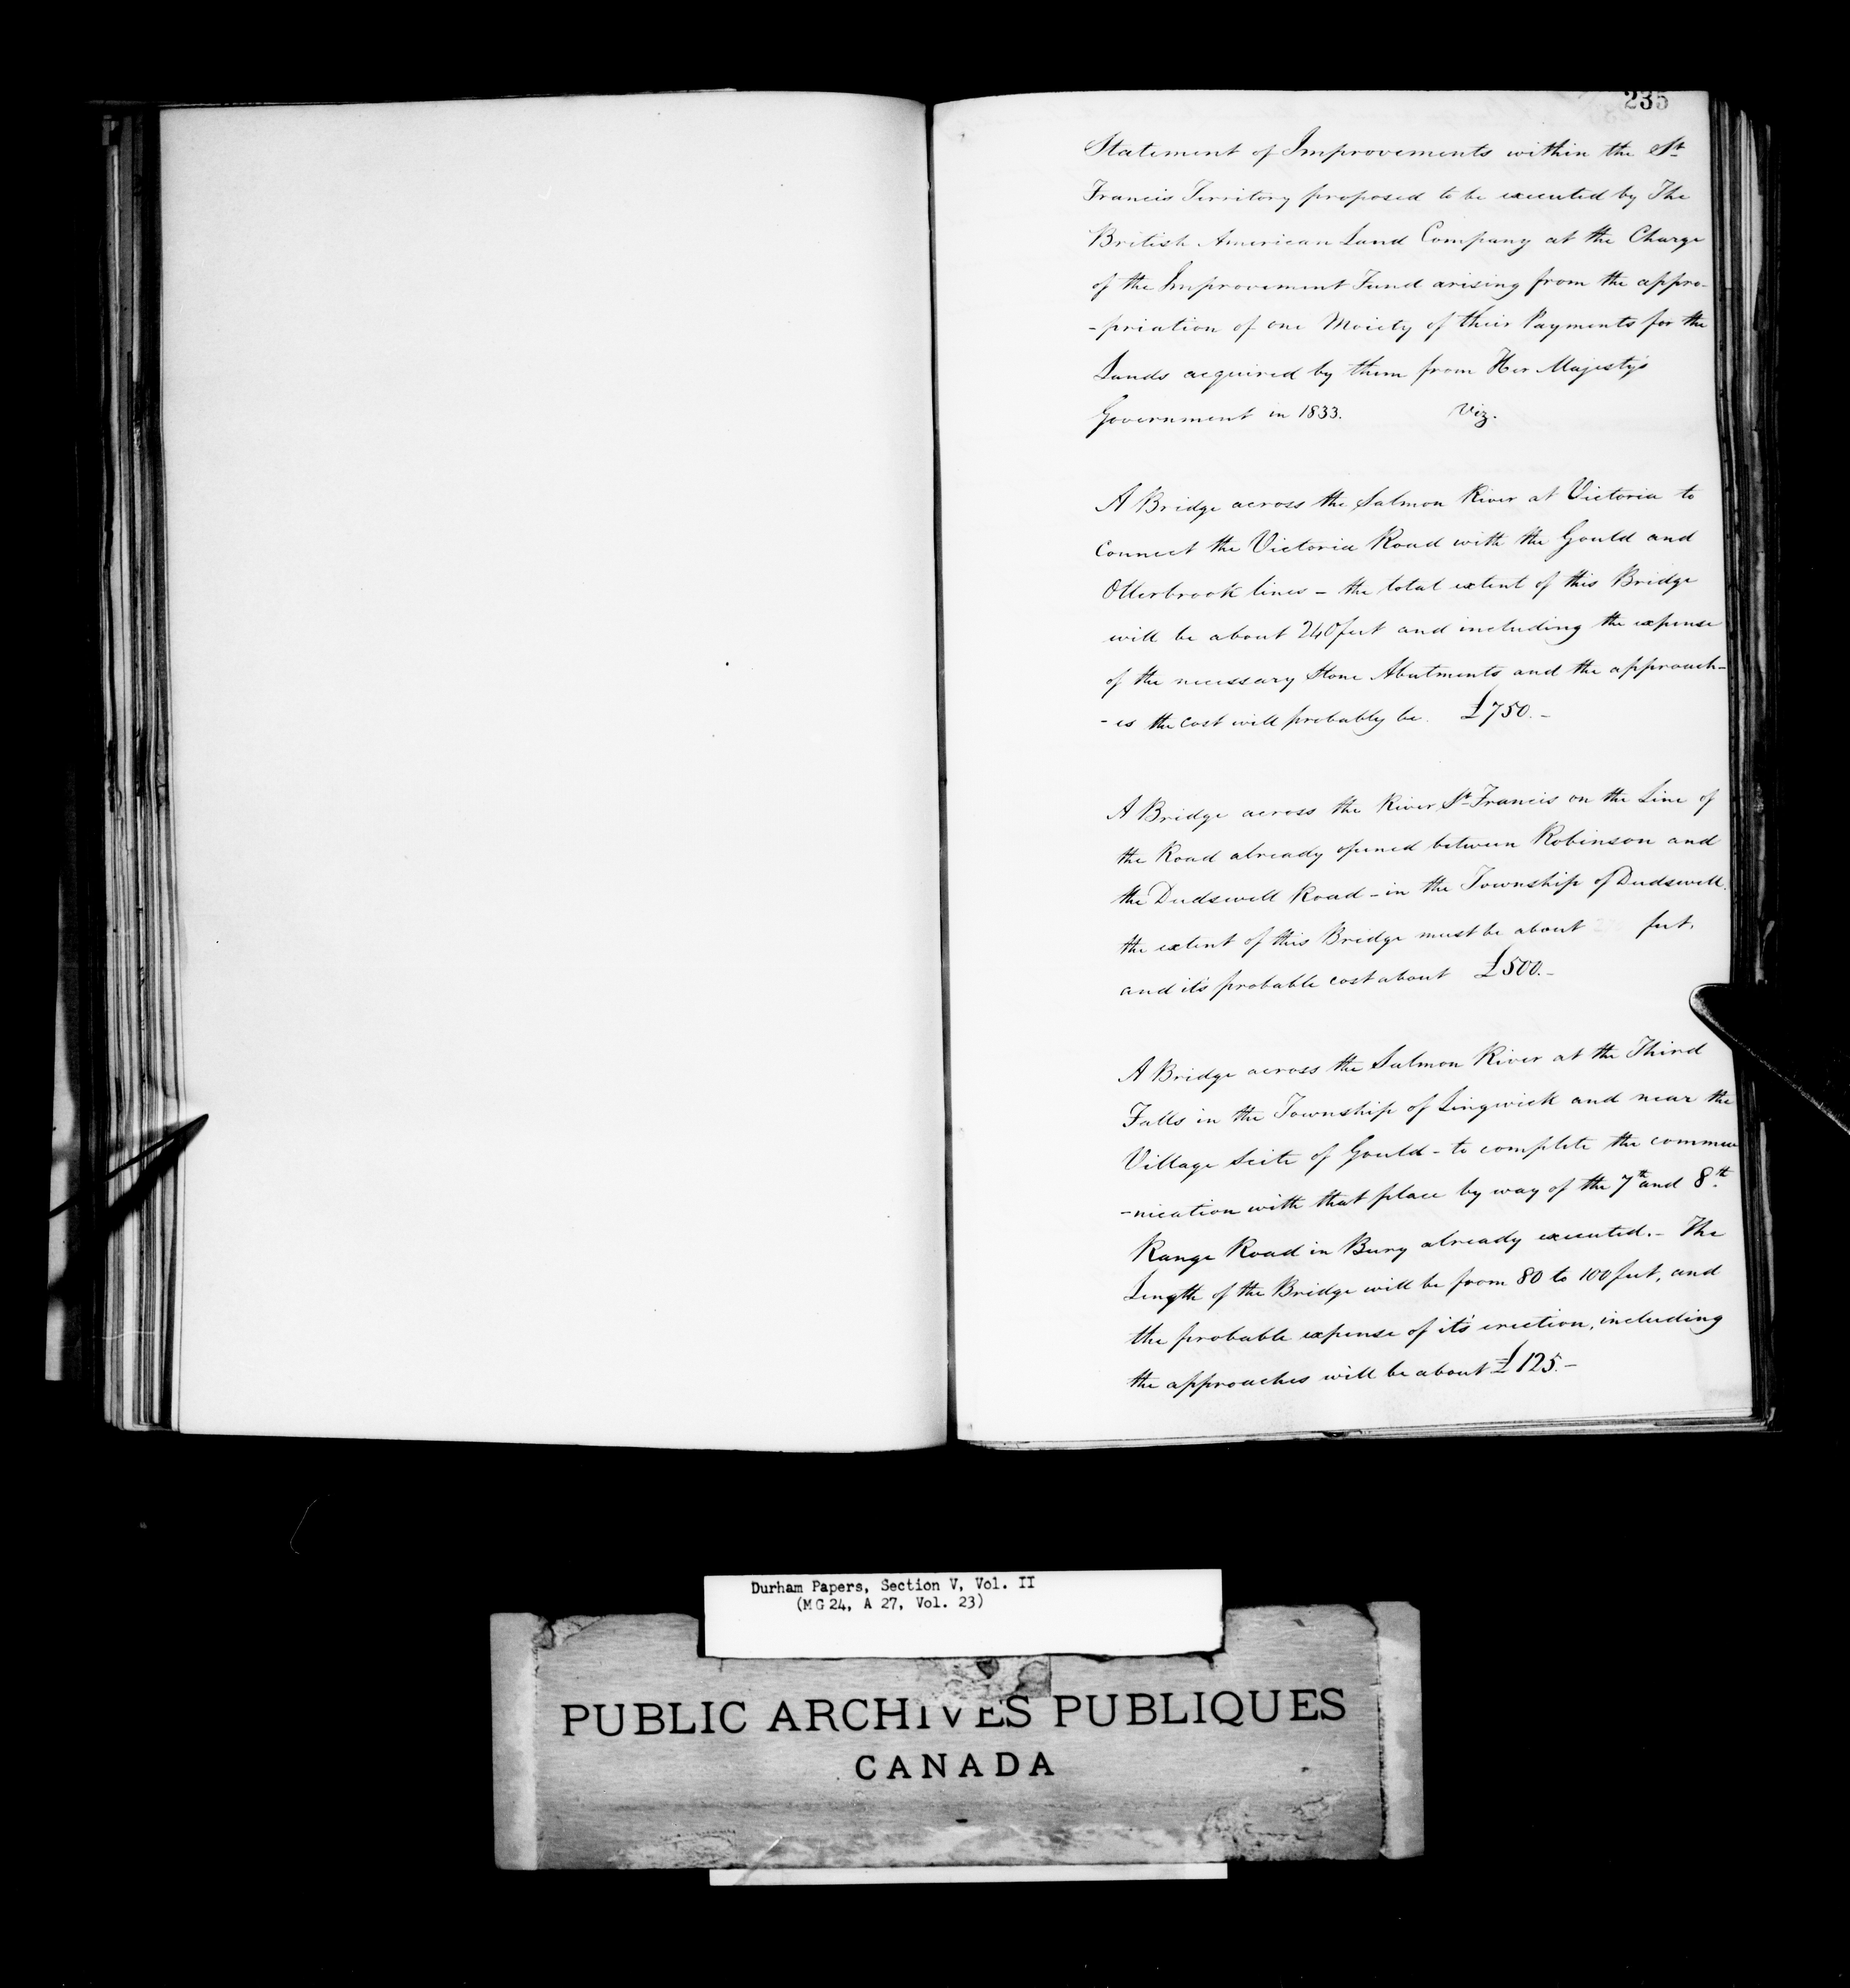 235
Statement of Improvements within the St
Francis Territory proposed to be executed by The
British American Land Company at the Charge
of the Improvement Fund arising from the appro-
-priation of one Moiety of their Payments for the
Lands acquired by them from Her Majesty's
Government in 1833. Viz.
A Bridge across the Salmon River at Victoria to
Connect the Victoria Road with the Gould and
Otterbrook lines – the total extent of this Bridge
will be about 240 feet and including the expense
of the necessary Stone Abutments and the approach-
-es the Cost will probably be £750.-
A Bridge across the River St Francis on the Line of
the Road already opened between Robinson and
the Dudswell Road – in the Township of Dudswell.
the extent of this Bridge must be about feet,
and it's probable cost about £500.-
A Bridge across the Salmon River at the Third
Falls in the Township of Lingwick and near the
Village Scite of Gould – to complete the commu
-nication with that place by way of the 7th and 8th
Range Road in Bury already executed. – The
Length of the Bridge will be from 80 to 100 feet, and
the probable expense of it's erection, including
the approaches will be about £125.-
Durham Papers, Section V, Vol. II
(MG 24, A 27, Vol. 23)
PUBLIC ARCHIVES PUBLIQUES
CANADA